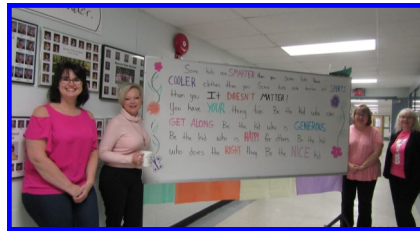 Some kids are SMARTER than you. Some kids have
COOLER clothes than you. Some kids are better at SPORTS
than you. It DOESN'T MATTER!
You have YOUR thing too. Be the kid who can
GET ALONG. Be the kid who is GENEROUS.
Be the kid who is HAPPY for others. Be the kid
who does the RIGHT thing. Be the NICE kid.